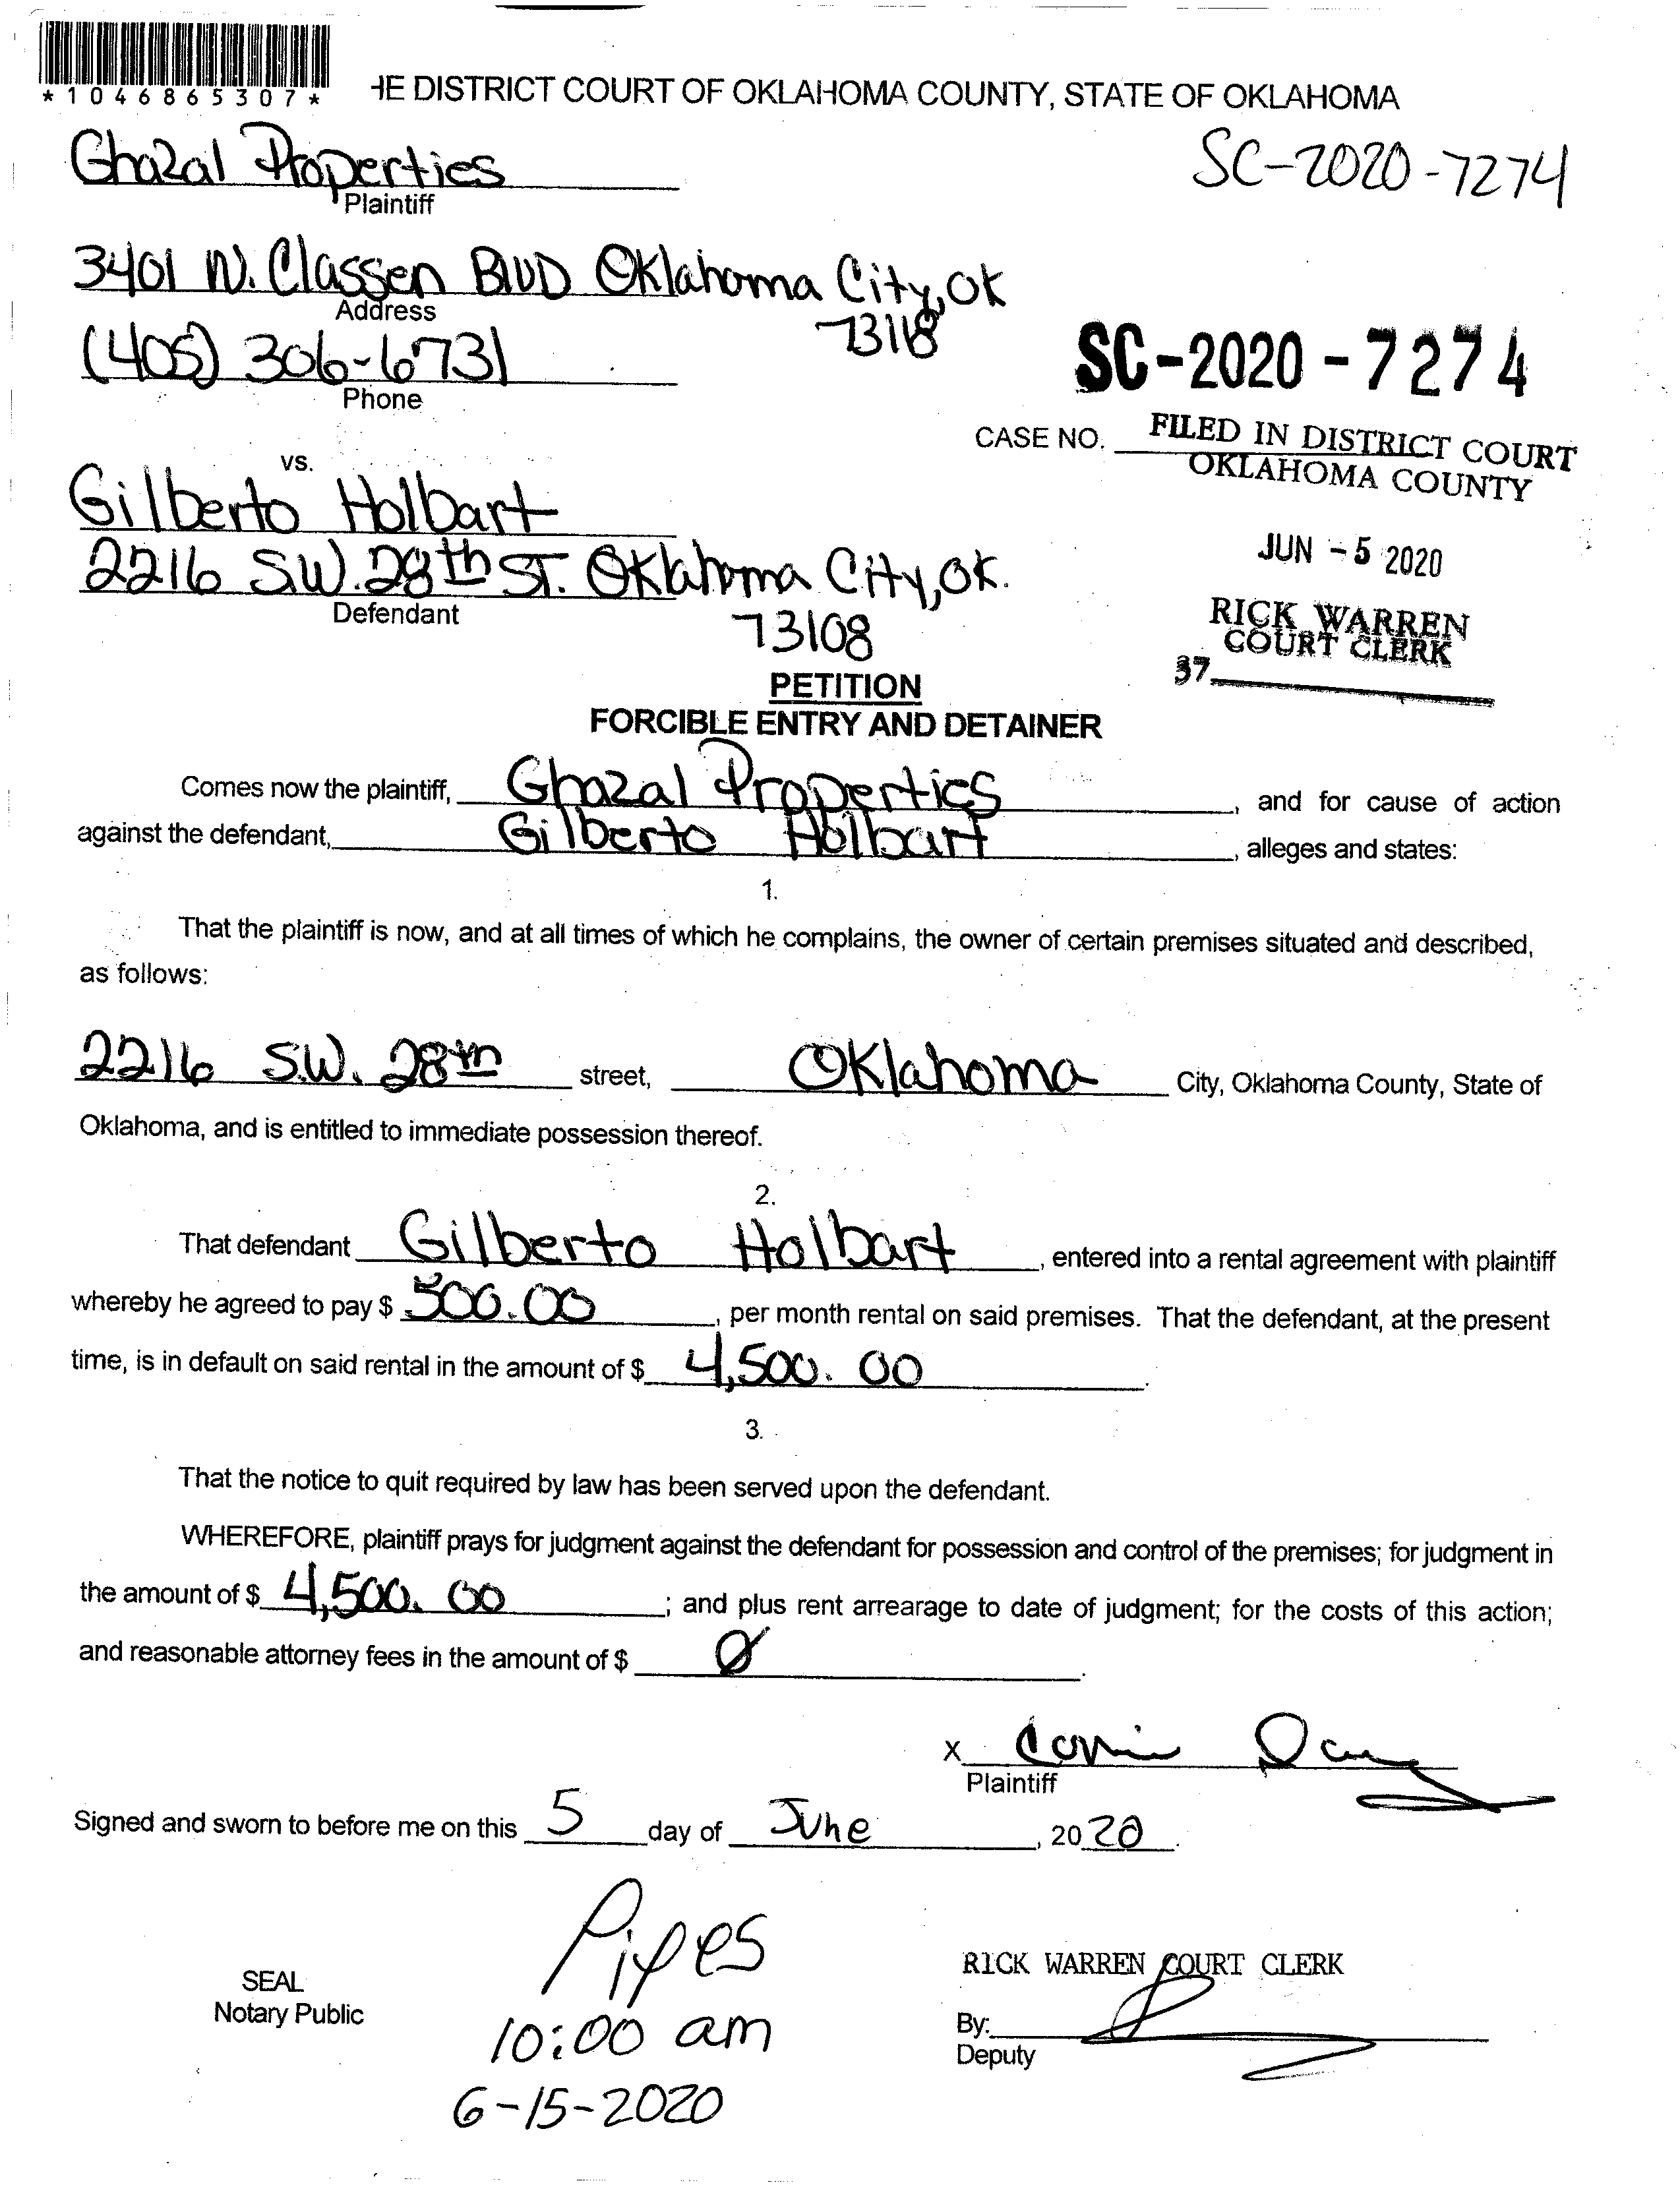 *1046865307*
HE DISTRICT COURT OF OKLAHOMA COUNTY, STATE OF OKLAHOMA
Ghazal Properties
Plaintiff
SC-2020-7274
3401 N. Classen BLVD Oklahoma City, OK
Address
73118
(405) 306-6731
Phone
SC-2020-7274
CASE NO.
FILED IN DISTRICT COURT
OKLAHOMA COUNTY
vs.
Gilberto Holbart
2216 S.W. 28th ST. Oklahoma City, OK.
Defendant
73108
JUN -5 2020
RICK WARREN
COURT CLERK
37
PETITION
FORCIBLE ENTRY AND DETAINER
Comes now the plaintiff, Ghazal Properties, and for cause of action
against the defendant, Gilberto Holbart, alleges and states:
1.
That the plaintiff is now, and at all times of which he complains, the owner of certain premises situated and described,
as follows:
2216 S.W. 28th street, Oklahoma City, Oklahoma County, State of
Oklahoma, and is entitled to immediate possession thereof.
2.
That defendant Gilberto Holbart, entered into a rental agreement with plaintiff
whereby he agreed to pay $ 500.00, per month rental on said premises. That the defendant, at the present
time, is in default on said rental in the amount of $ 4,500.00.
3.
That the notice to quit required by law has been served upon the defendant.
WHEREFORE, plaintiff prays for judgment against the defendant for possession and control of the premises; for judgment in
the amount of $ 4,500.00; and plus rent arrearage to date of judgment; for the costs of this action;
and reasonable attorney fees in the amount of $ Ø.
X
Plaintiff
Signed and sworn to before me on this 5 day of June, 2020.
Pipes
10:00 am
6-15-2020
SEAL
Notary Public
RICK WARREN COURT CLERK
By:
Deputy